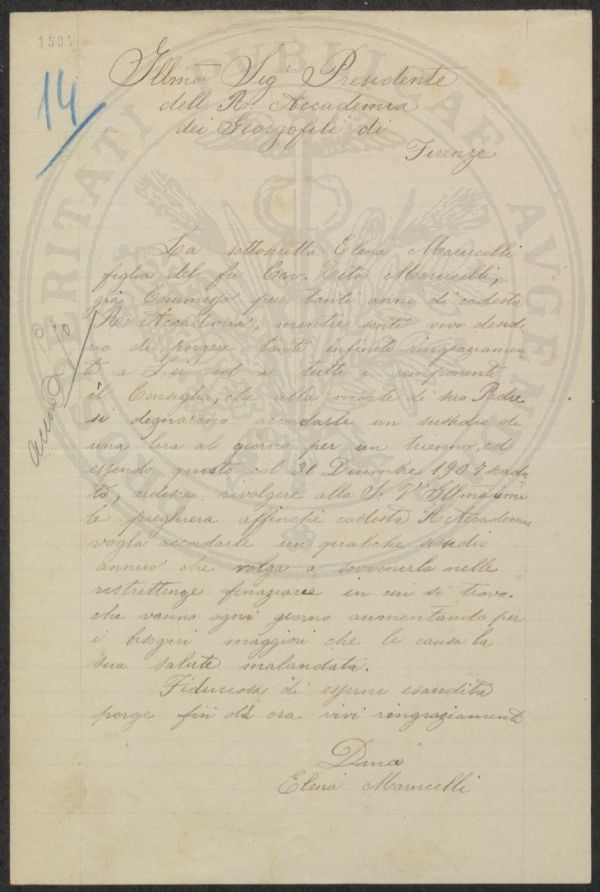 1504
14
Illmo Sig Presidente
dell R. Accademia
dei Georgofili di
Firenze
La sottoscritta Elena Marucelli
figlia del fu Cav. Tito Marucelli,
già Commesso per tanti anni di codesta
R. Accademia, mentre sente vivo deside
rio di porgere tanti infiniti ringraziamen
ti a Lei ed a tutti i componenti
il Consiglio, che alla morte di suo Padre
si degnarono accordarle un sussidio di
una lira al giorno per un triennio, ed
essendo questo col 31 Dicembre 1907 scadu
to, ardisce rivolgere alla S. V. Illma umi
le preghiera affinchè codesta R. Accademia
voglia accordarle un qualche sussidio
annuo che valga a sovvenirla nelle
ristrettezze finaziarie in cui si trova
che vanno ogni giorno aumentando per
i bisogni maggiori che le causa la
sua salute malandata.
Fiduciosa di essere esaudita
porge fin da ora vivi ringraziamenti
Dma
Elena Marucelli
PROSPERITATI PUBLICAE AVGENDAE